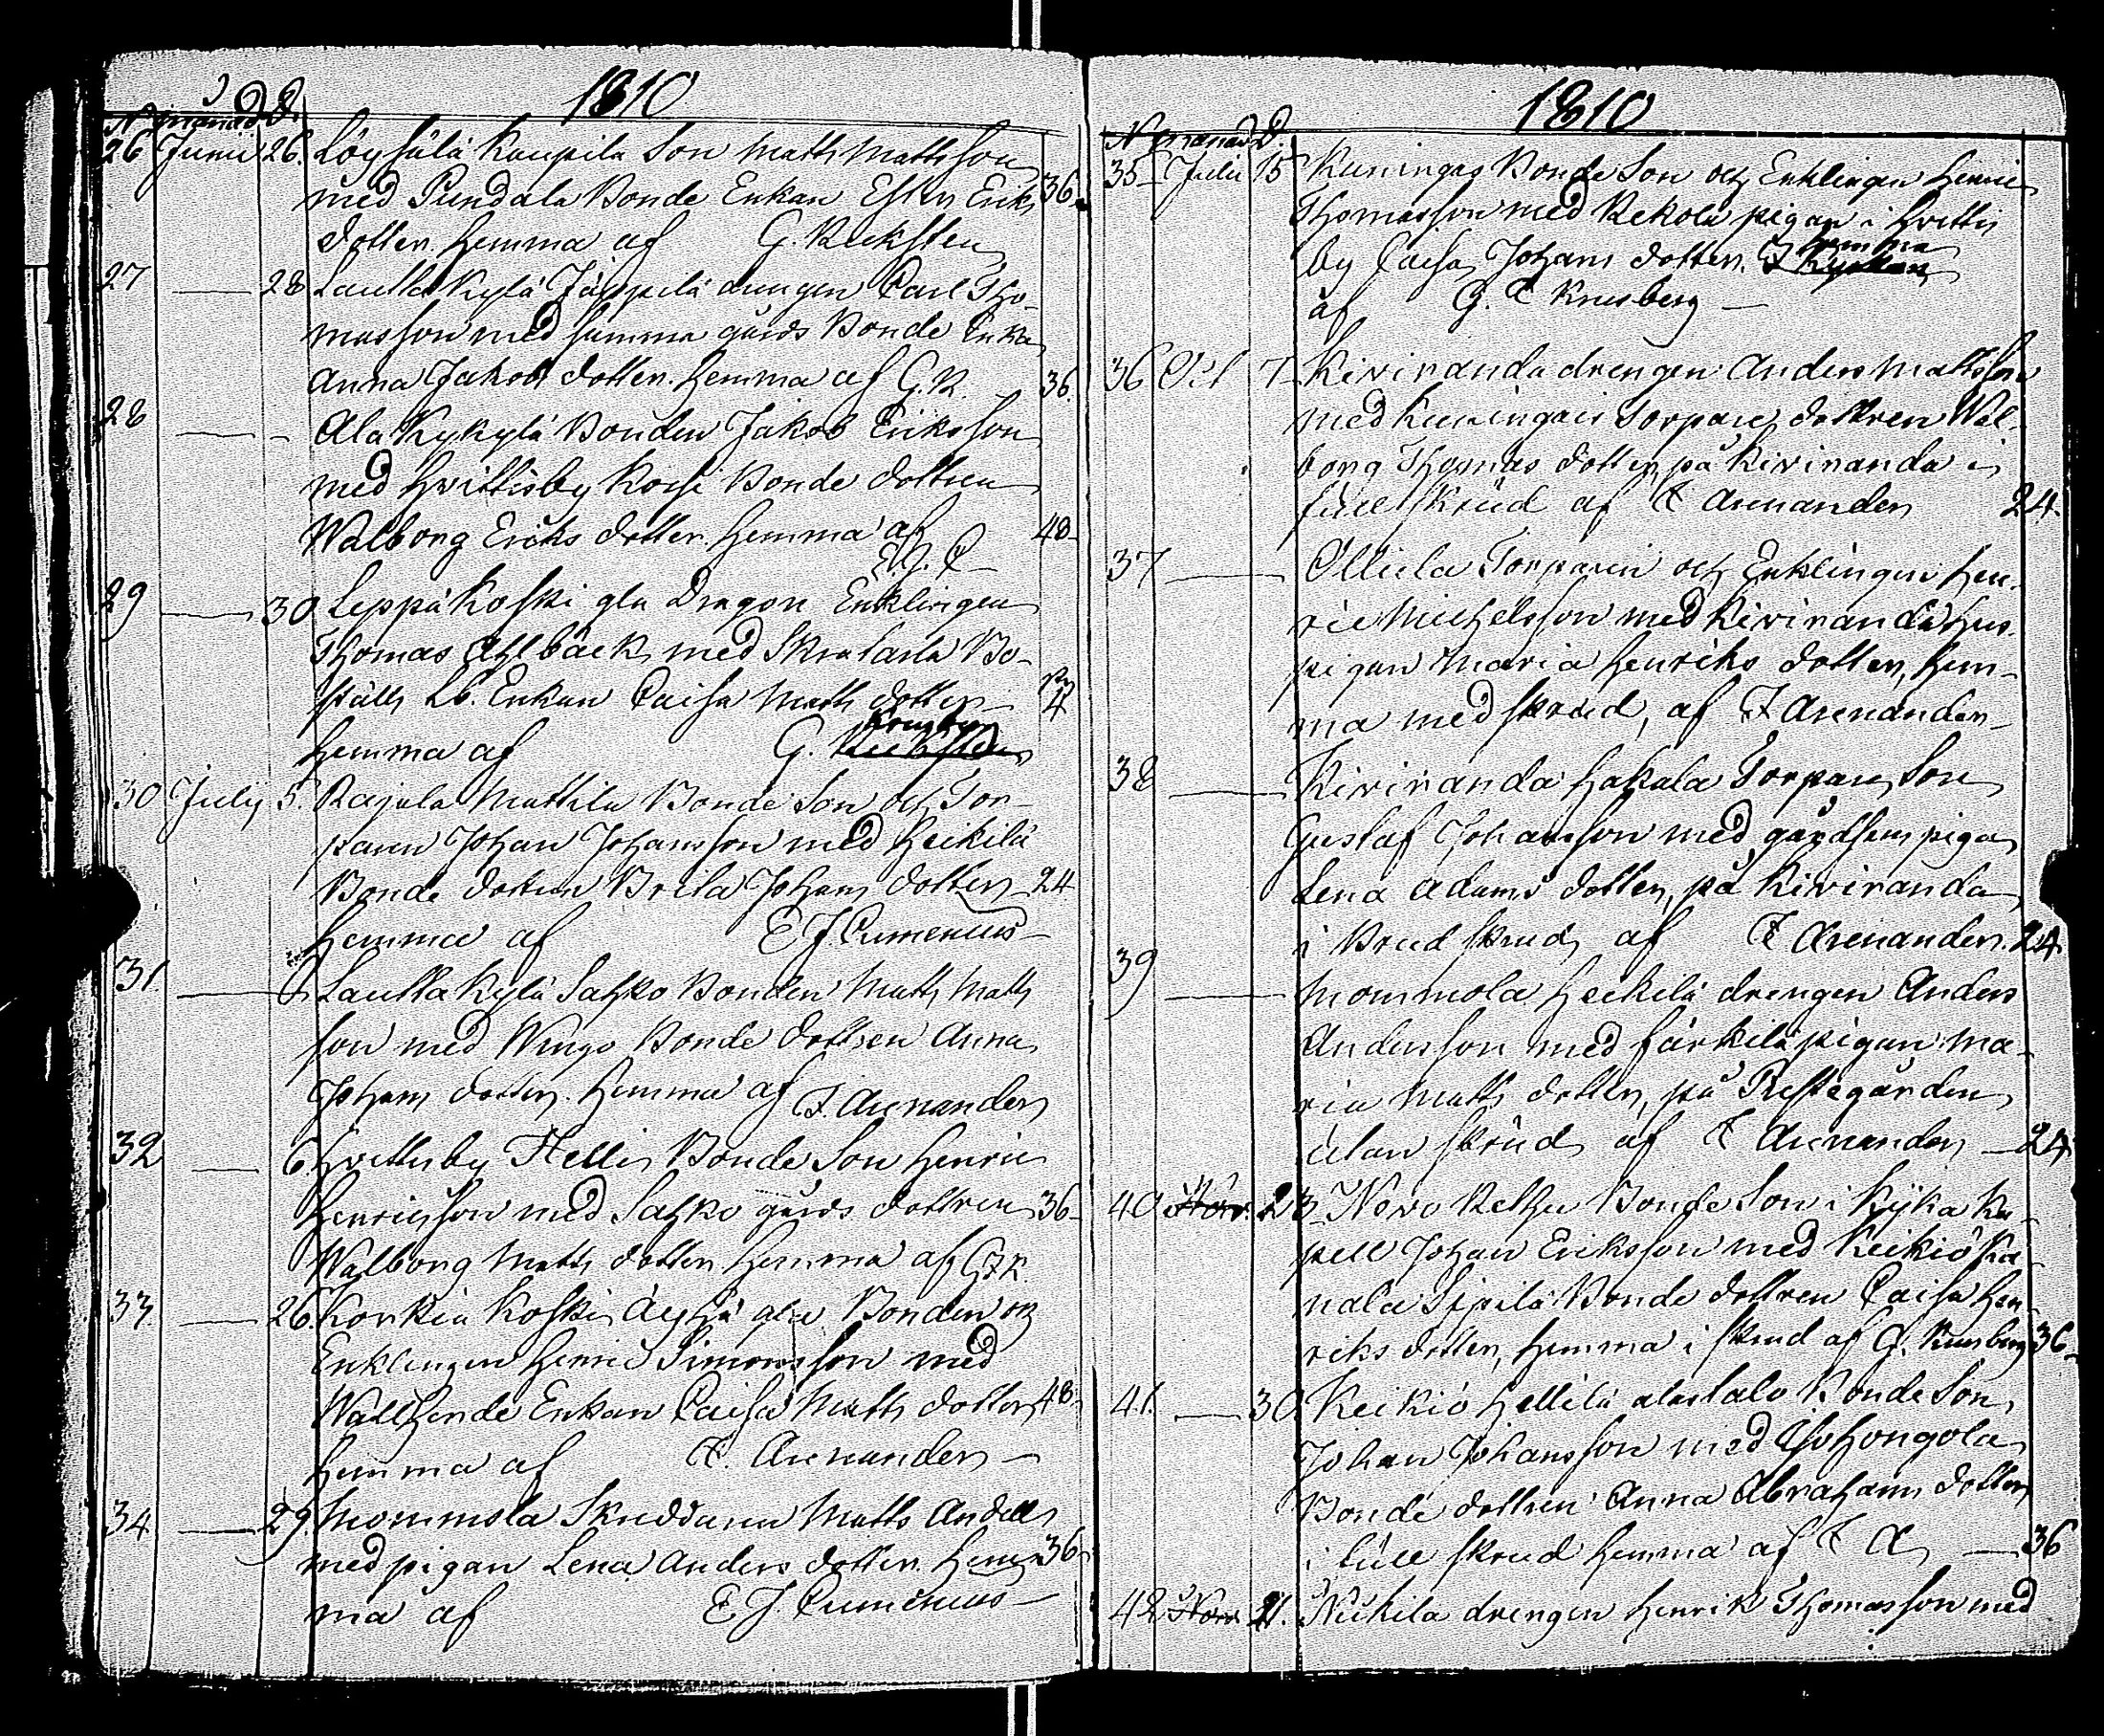 1810
N månad D.
26 Junii 26. Löysälä Kaupila Son Matts Mattsson
med Pundala Bonde Enkan Ester Eriks 36
dotter. hemma af G. Reksten
27 — 28 Lauttakylä Jäppilä drengen Carl Tho-
masson med samma gårds Bonde Enka
Anna Jakobs dotter. hemma af G. R. 36.
28 — - Ala Kykylä Bonden Jakob Eriksson
med Hvittisby Korsi Bonde dottren
Walborg Eriks dotter. hemma af 48-
E. J. C
29 — 30 Leppäkoski gla Dragon Enklingen
Thomas Ahlbäck, med Skratarla Bo-
ställs Enkan Caisa Matts dotter 4
Krusberg
hemma af G. Reksten
30 Julij 5. Rajala Mattila Bonde Son och Tor-
paren Johan Johansson med Heikilä
Bonde dottren Brita Johans dotter 24
hemma af E J. Cumenius
31. — 6 Lauttakylä Sahko Bonden Matts Matts
son med Wingo Bonde dottren Anna
Johans dotter. hemma af F. Arenander
32 — 6 Hvittisby Helli Bonde Son Henric
Henricsson med Sahko gårds dottren 36-
Walborg Matts dotter hemma af G. K.
33 — 26. Korkia Koski Äyhä gla Bonden och
Enklingen Henric Simonsson med
Wällhende Enkan Caisa Matts dotter 48-
hemma af F. Arenander
34 — 29. Mommola Skreddaren Matts Andell
med pigan Lena Anders dotter. hem- 36
ma af E J. Cumenius
1810
N månad D.
35 Julii 15 Kuningas Bonde Son och Enklingen Henric
Thomasson med Rekola pigan i Hvittis
hemma
by Caisa Johans dotter. I Kyrkan
af G. Krusberg
36 Oct 7 Kiviranda drengen Anders Mattsson
med Kuningais Torpare dottren Wal-
borg Thomas dotter, på Kiviranda i
full skrud af F Arenander 24.
37 — Ollila Torparen och Enklingen Hen-
ric Michelsson med Kiviranda hus-
pigan Maria Henriks dotter, hem-
ma med skrud, af F Arenander
38 — Kiviranda Hakala Torpare Son
Gustaf Johansson med gårdsens piga
Lena Adams dotter, på Kiviranda
i Brud skrud af F Arenander. 24
39 — Mommola Heikilä drengen Anders
Andersson med Färkilä pigan Ma-
ria Matts dotter, på Prestegården
utan skrud af F Arenander — 24
40 Nov. 23 Novo Bonde Son i Kjika Ka-
pell Johan Eriksson med Keikiö Ka-
nala Sipilä Bonde dottren Caisa Hen-
riks dotter, hemma i skrud af G. Krusberg 36
41. — 30. Keikiö Hellilä alastalo Bonde Son
Johan Johansson med Isohongola
Bonde dottren Anna Abrahams dotter
i full skrud hemma af F A — 36
42 Nov. 21. Neikila drengen Henrik Thomasson med